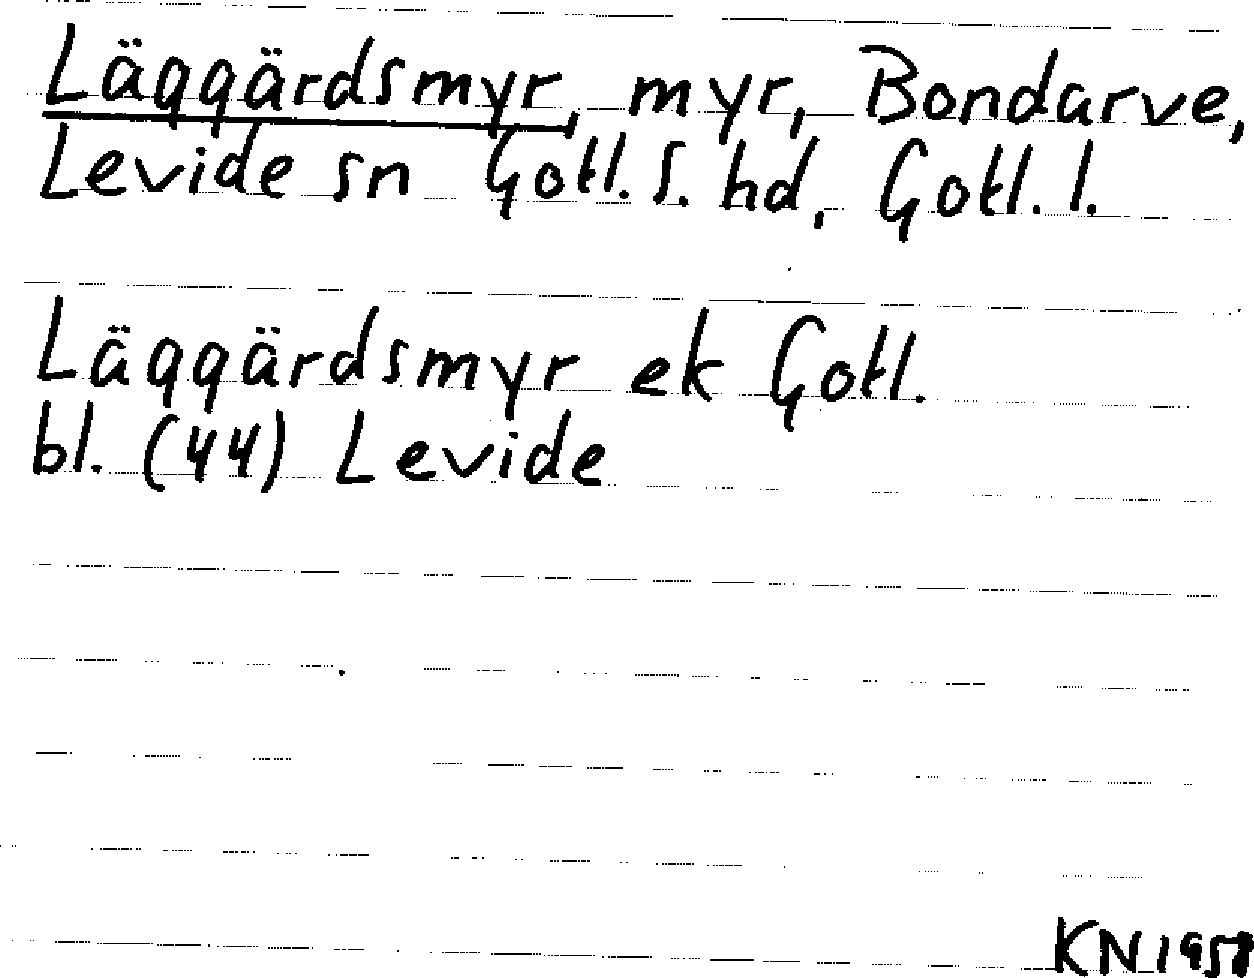 Läggärdsmyr, myr, Bondarve,
Levide sn Gotl. S. hd, Gotl. l.
Läggärdsmyr ek Gotl.
bl. (44) Levide
KN 1958